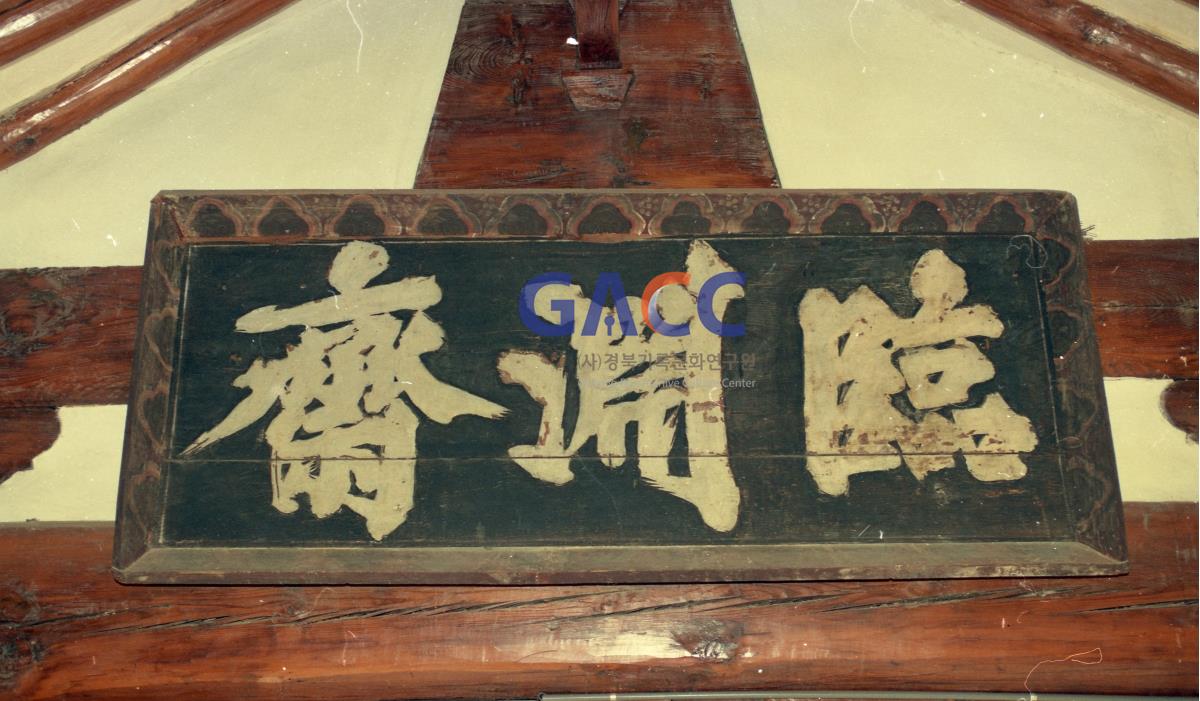 臨淵齋
GACC
(사)경북기록문화연구원
Center